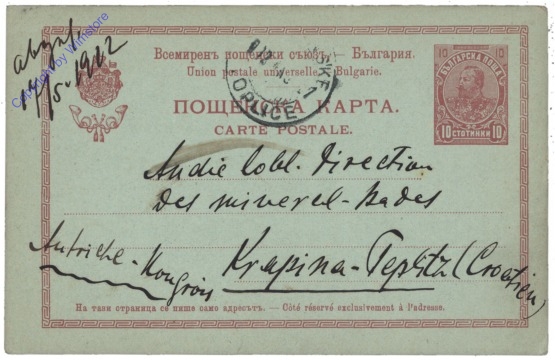 abgef.
17/5-1912
Copyright by Wimstore
Всемиренъ пощенски съюзъ. България.
Union postale universelle. Bulgarie.
ПОЩЕНСКА КАРТА.
CARTE POSTALE.
10 10
БЪЛГАРСКА ПОЩА
10 СТОТИНКИ 10
OPLICE
An die löbl. Direction
des mineral-Bades
Krapina-Teplitz (Croatien)
Autriche-Hongrois
На тази страница се пише само адресътъ. — Côté réservé exclusivement à l'adresse.